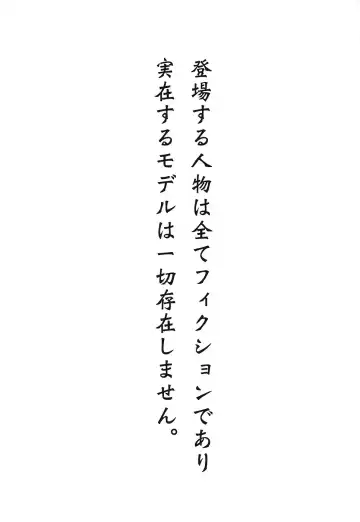 登場する人物は全てフィクションであり
実在するモデルは一切存在しません。